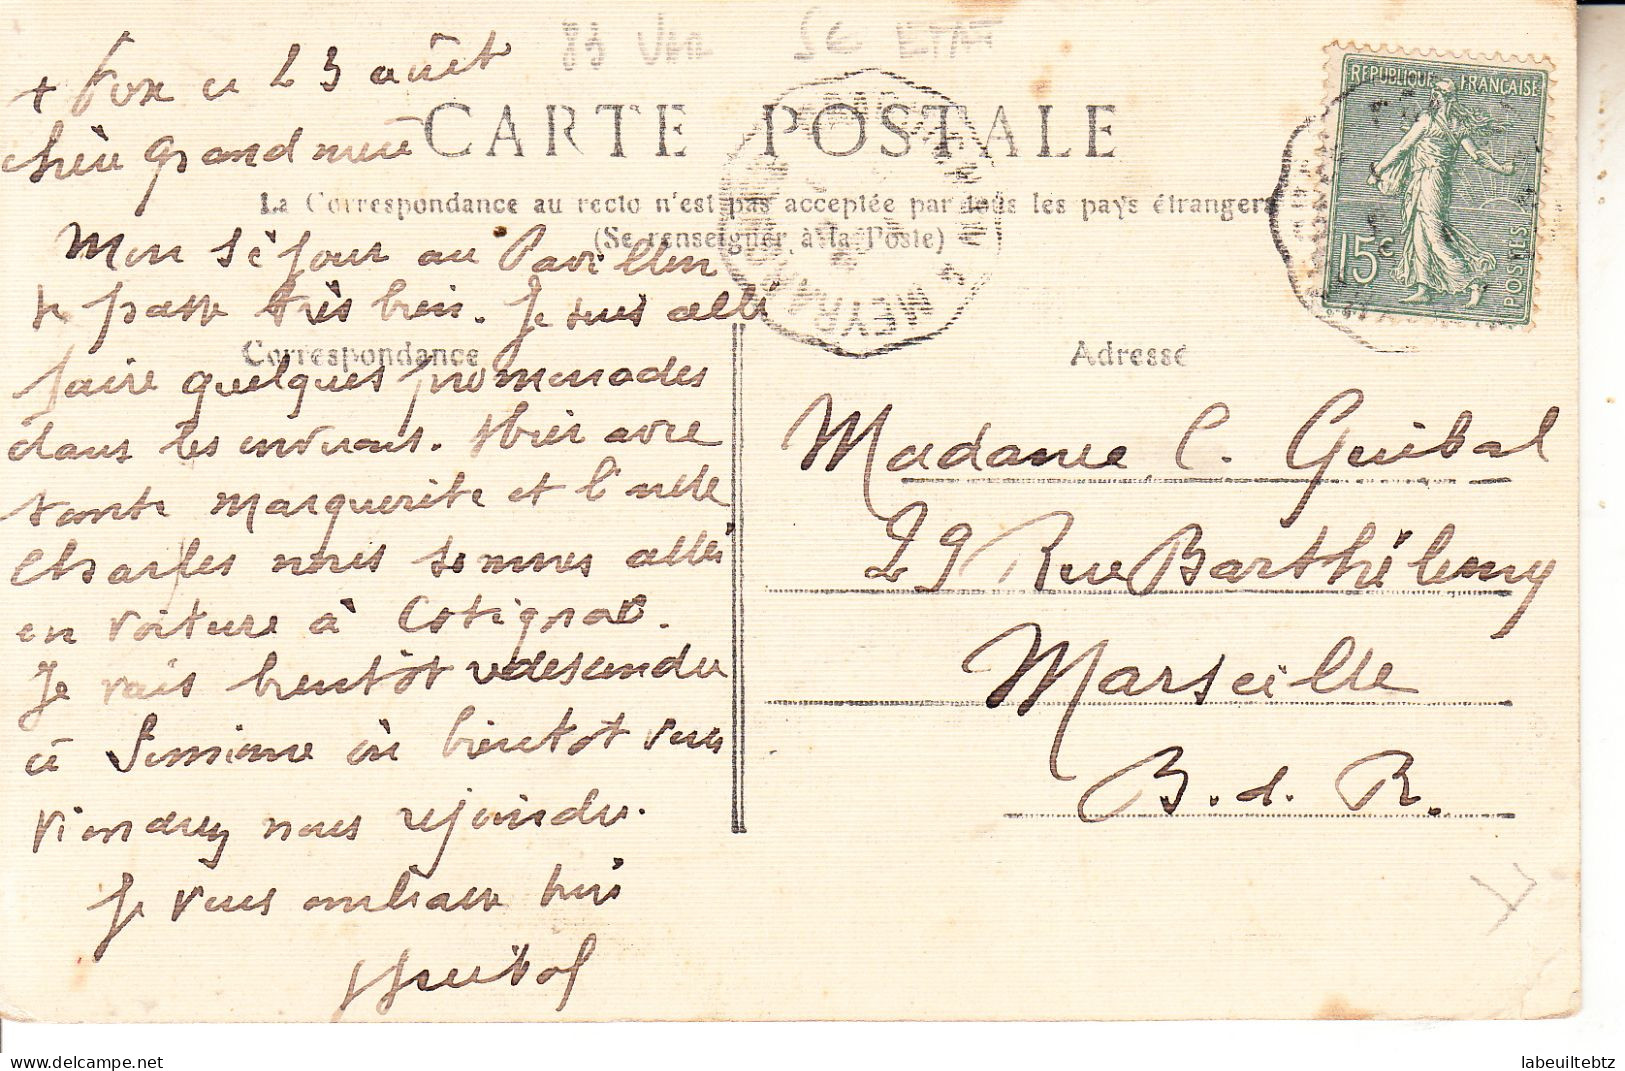 + Fox ce 23 août
CARTE POSTALE
chère grand mère
La Correspondance au recto n'est pas acceptée par tous les pays étrangers
(Se renseigner à la Poste)
Mon séjour au Pavillon
se passe très bien. Je suis allé
Correspondance
faire quelques promenades
dans les environs. Hier avec
tante Marguerite et l'oncle
Charles nous sommes allés
en voiture à Cotignac.
Je vais bientôt redescendre
à Simiane où bientôt vous
viendrez nous rejoindre.
Je vous embrasse bien
Guibal
REPUBLIQUE FRANÇAISE
15c
POSTES
Adresse
Madame C. Guibal
29 Rue Barthélemy
Marseille
B. d. R.
labeuiltebtz